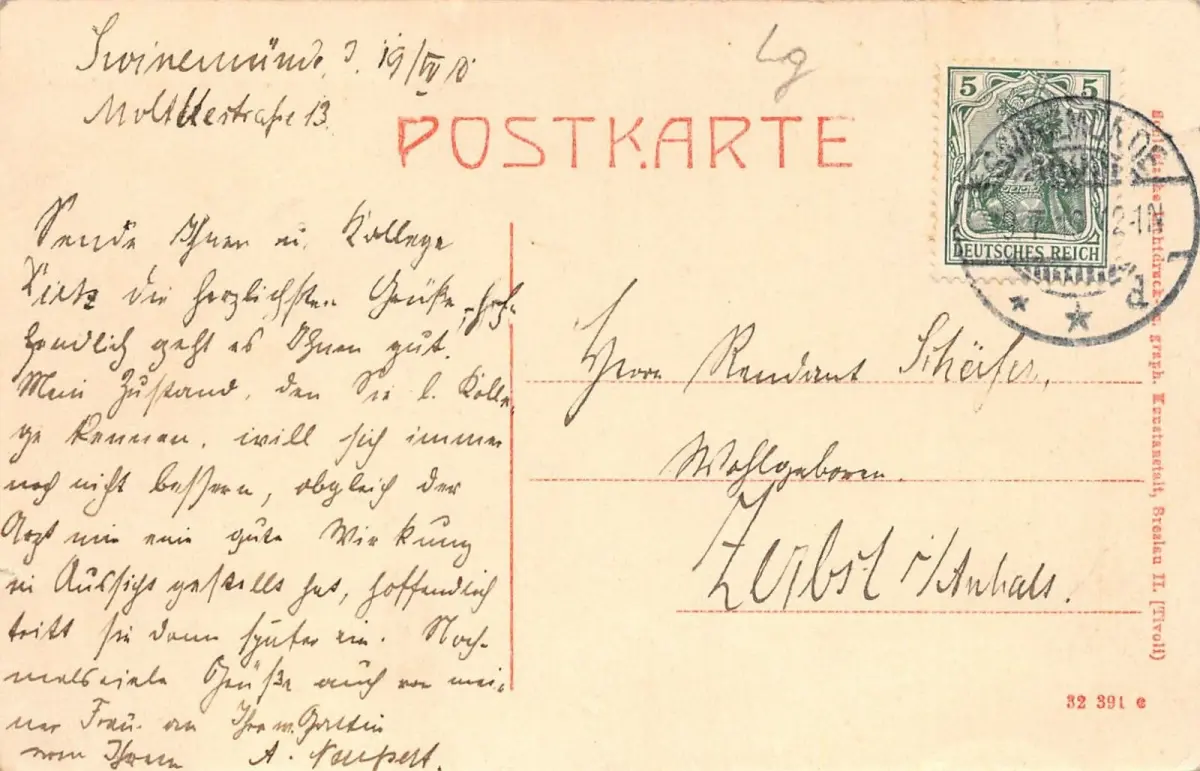 Swinemünde, d. 19/VII 10
Moltkestraße 13.
Lg
POSTKARTE
5 5
DEUTSCHES REICH
Sende Ihnen u. Kollege
Lietz die herzlichsten Grüße, hof-
fendlich geht es Ihnen gut.
Mein Zustand, den Sie l. Kolle-
ge kennen, will sich immer
noch nicht bessern, obgleich der
Arzt mir eine gute Wirkung
in Aussicht gestellt hat, hoffendlich
tritt sie dann später ein. Noch-
mals viele Grüße auch von mei-
ner Frau an Ihre w. Gattin
vom Ihrem A.
Herrn Rendant Schäfer,
Wohlgeboren.
Zerbst i/Anhalt.
graph. Kunstanstalt, Breslau II. (Tivoli)
32 391 e